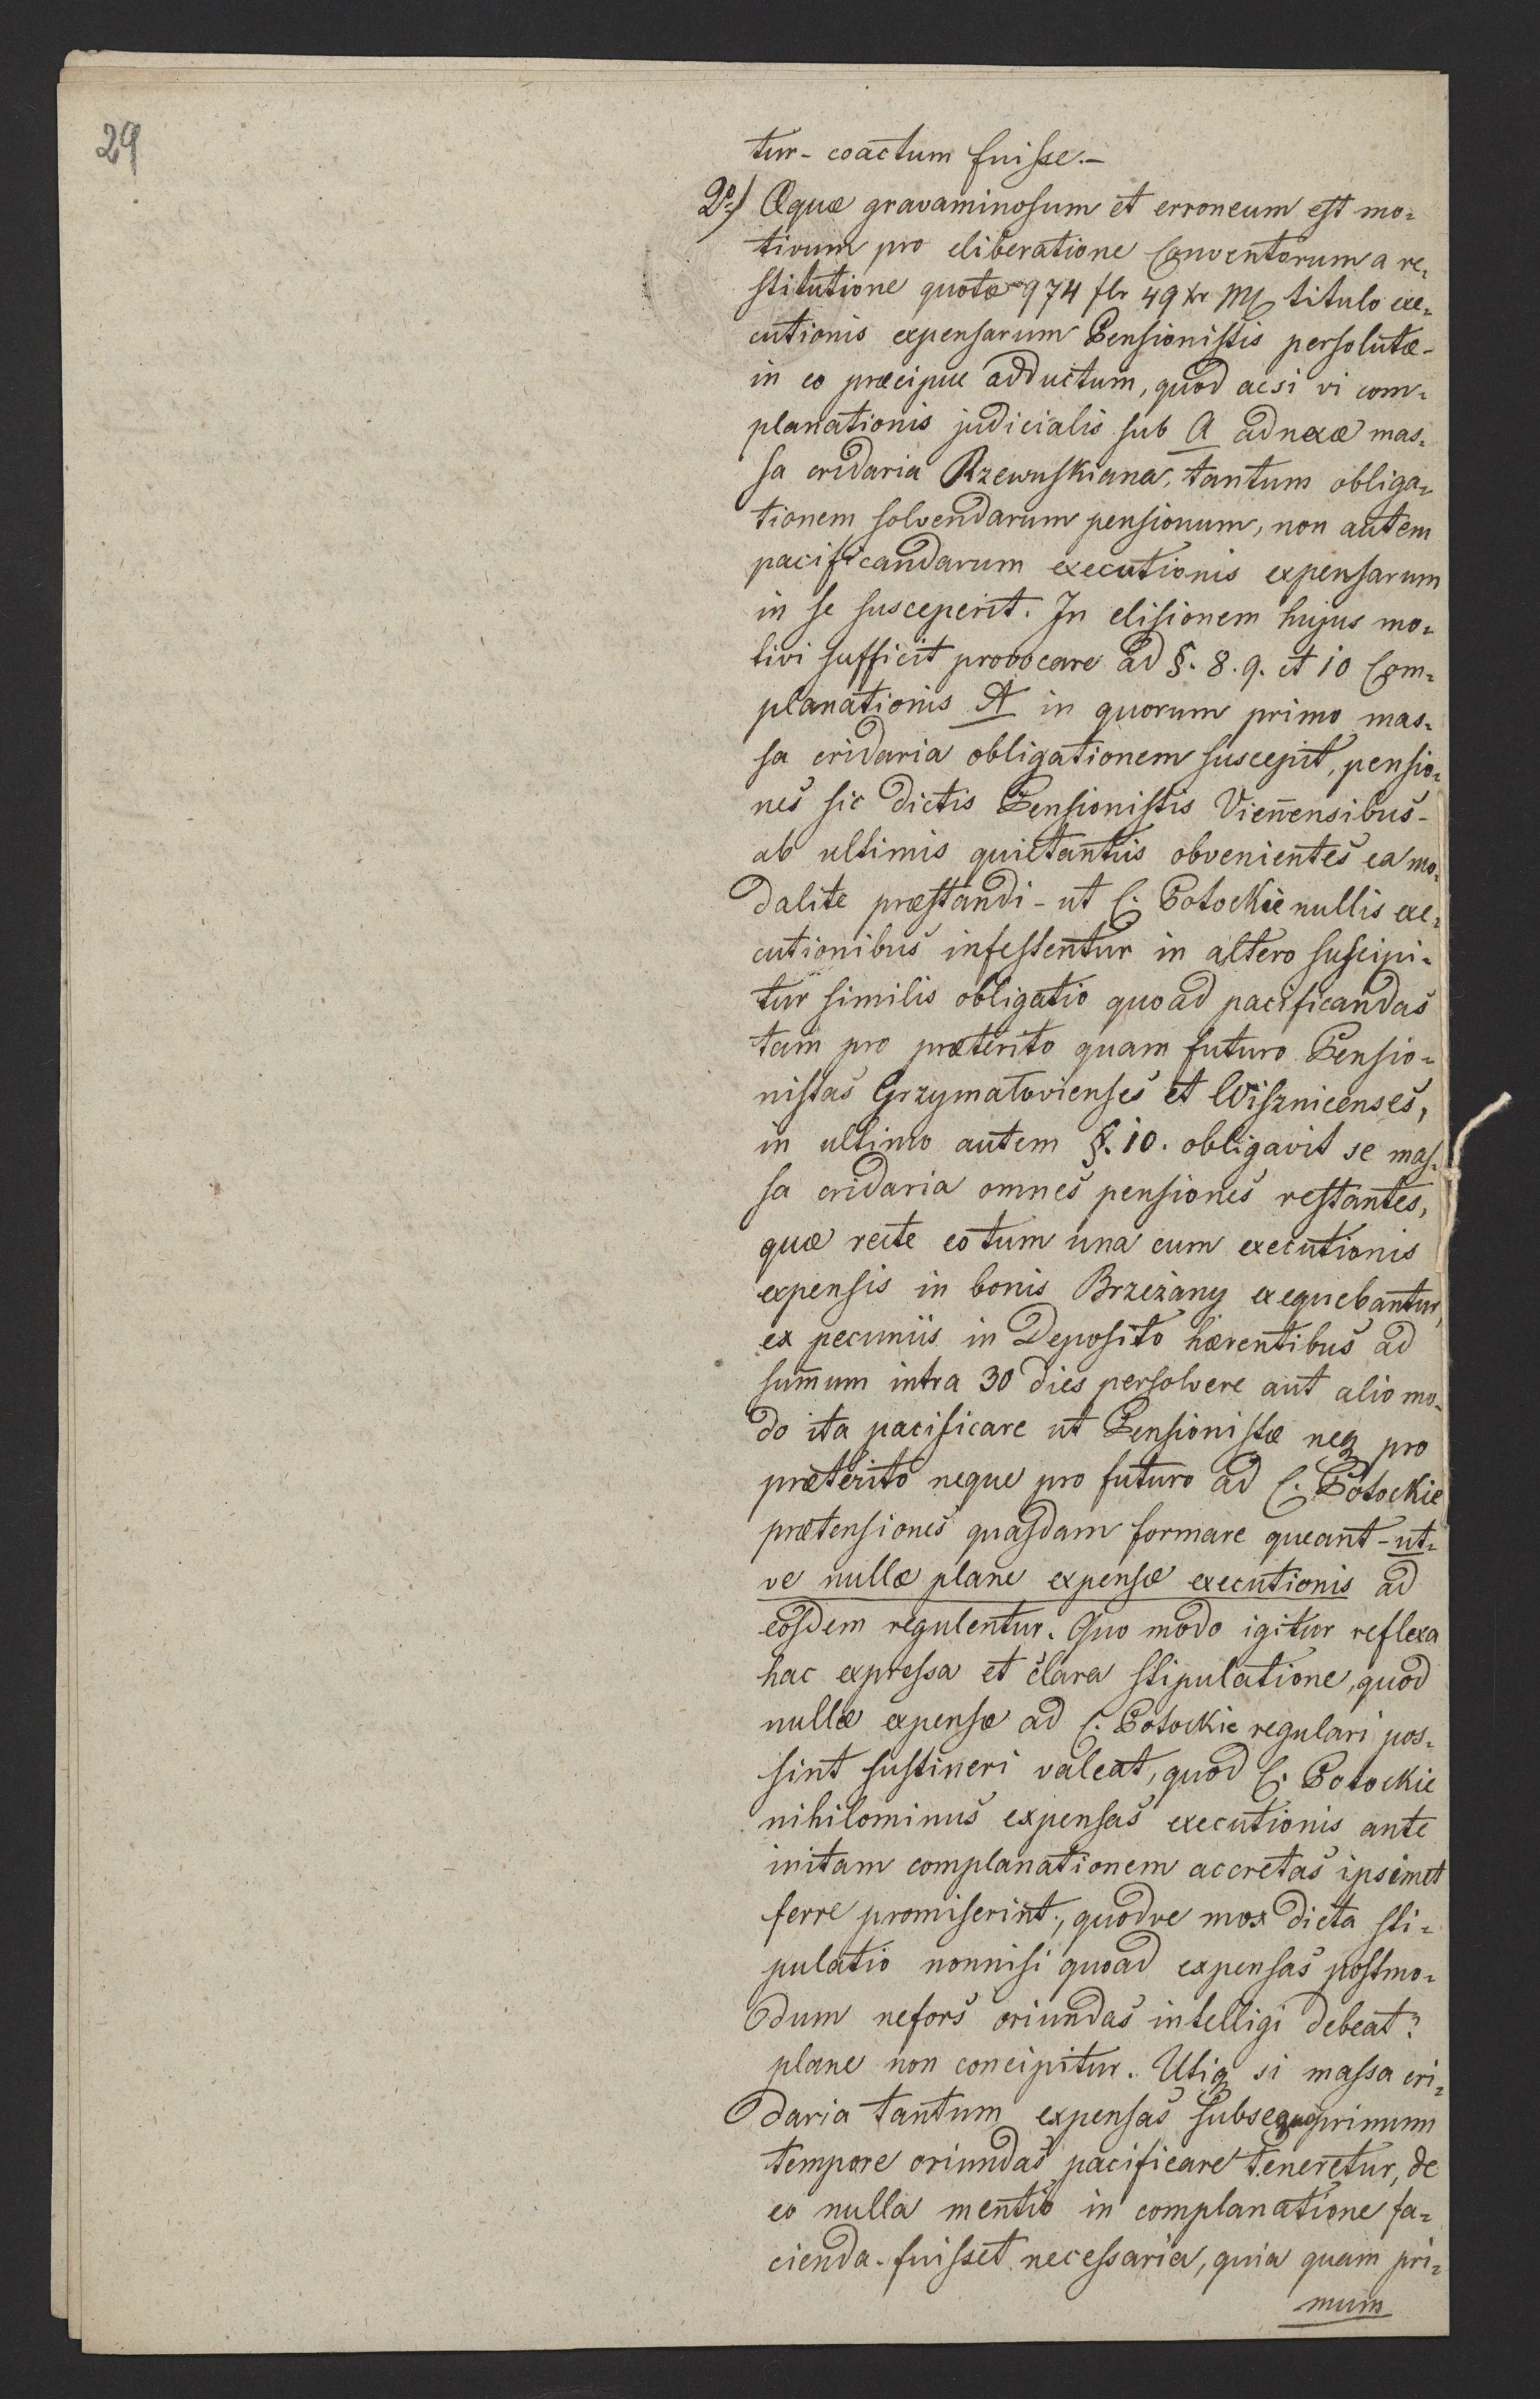 29
tur - coactum fuisse. -
2o/ Æque gravaminosum et erroneum est mo=
tivum pro eliberatione Conventorum a re=
stitutione quotæ 974 flr 49 xr titulo exe=
cutionis expensarum Pensionistis persolutæ -
in eo præcipue adductum, quod acsi vi com=
planationis judicialis sub A adnexæ mas=
sa cridaria Rzewuskiana, tantum obliga=
tionem solvendarum pensionum, non autem
pacificandarum executionis expensarum
in se susceperit. In elisionem hujus mo=
tivi sufficit provocare ad §. 8. 9. et 10 Com=
planationis A in quorum primo mas=
sa cridaria obligationem suscepit, pensio=
nes sic dictis Pensionistis Vieñensibus -
ab ultimis quietantiis obvenientes ea mo=
dalite præstandi - ut C. Potockie nullis exe=
cutionibus infestentur in altero suscipi=
tur similis obligatio quoad pacificandas
tam pro præterito quam futuro Pensio=
nistas Grzymałovienses et Wisznicenses,
in ultimo autem §. 10. obligavit se mas=
sa cridaria omnes pensiones restantes,
quæ recte eo tum una cum executionis
expensis in bonis Brzeżany exequebantur,
ex pecuniis in Deposito hærentibus ad
sum̃um intra 30 dies persolvere aut alio mo=
do ita pacificare ut Pensionistæ neq pro
præterito neque pro futuro ad C. Potockie
prætensiones quasdam formare queant - ut=
ve nullæ plane expensæ executionis ad
eosdem regulentur. Quo modo igitur reflexa
hac expressa et clara stipulatione, quod
nullæ expensæ ad C. Potockie regulari pos=
sint sustineri valeat, quod C. Potockie
nihilominus expensas executionis ante
initam complanationem accretas ipsimet
ferre promiserint, quodve mox dicta sti=
pulatio nonnisi quoad expensas postmo=
dum nefors oriundas intelligi debeat?
plane non concipitur. Utiq si massa cri=
daria tantum expensas subsequo primum
tempore oriundas pacificare teneretur, de
eo nulla mentio in complanatione fa=
cienda fuisset necessaria, quia quam pri=
mum